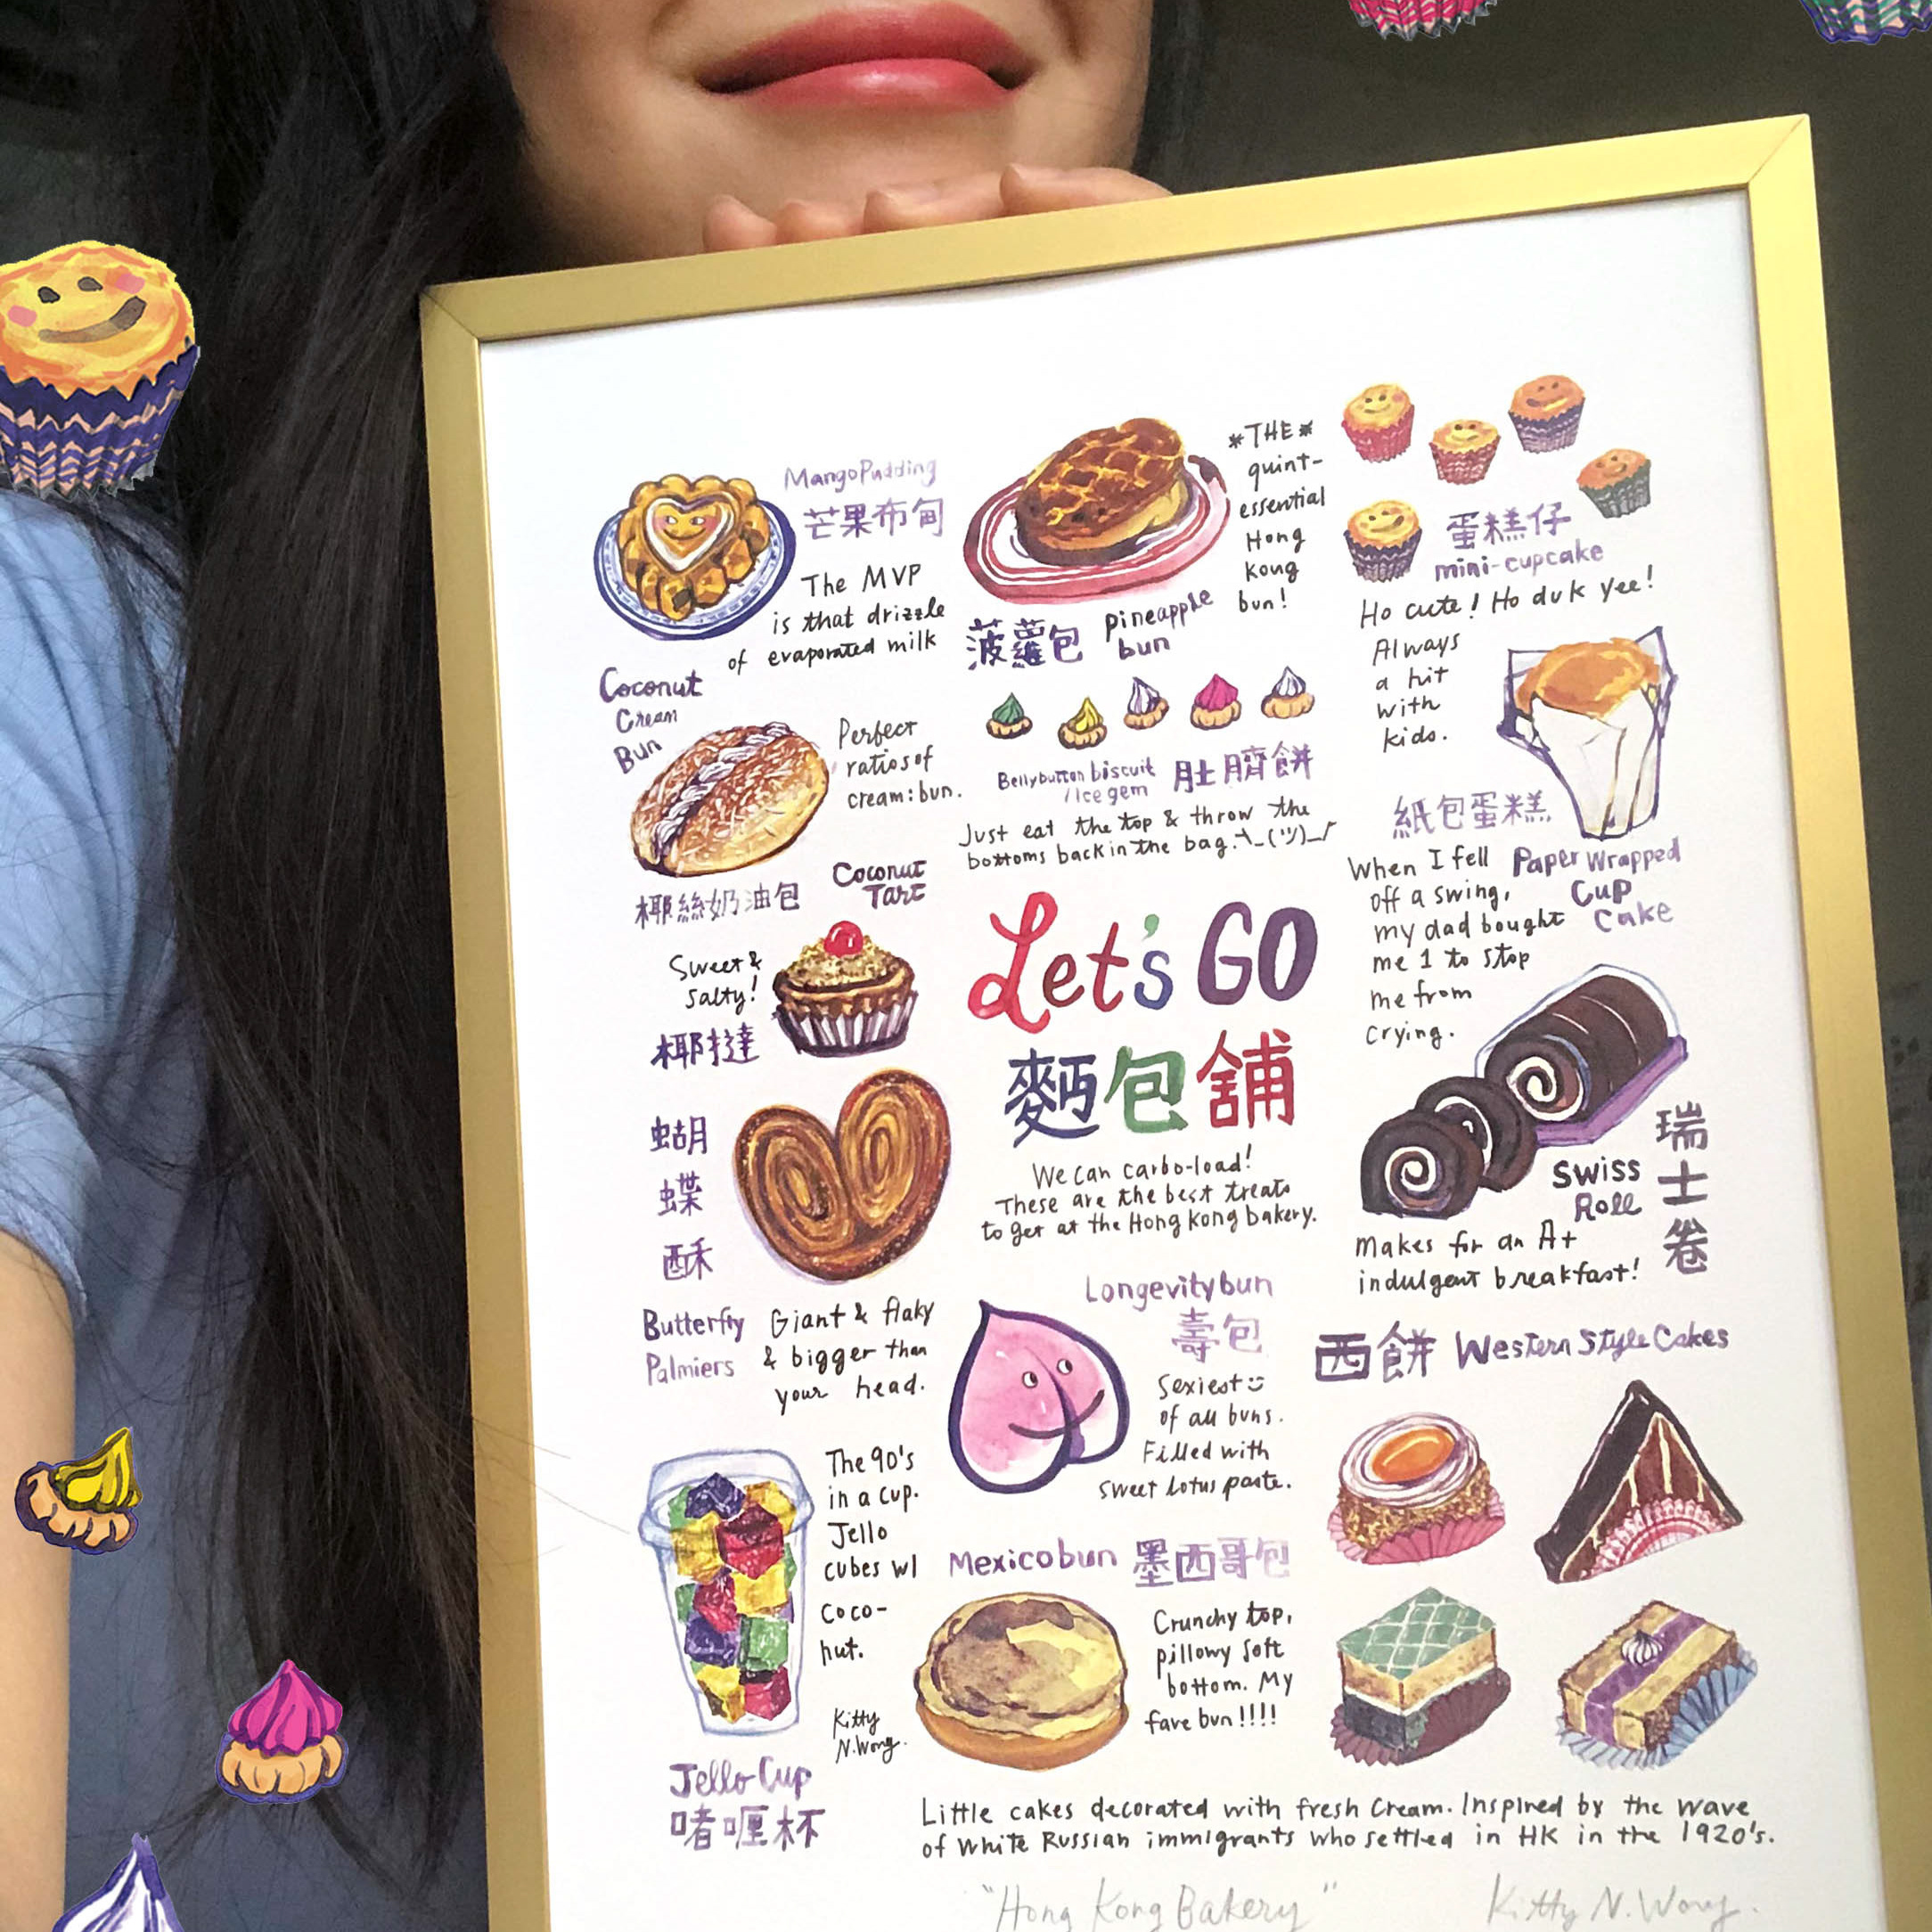 Mango Pudding
芒果布甸
The MVP
is that drizzle
of evaporated milk
*THE*
quint-
essential
Hong
Kong
bun!
菠蘿包
pineapple
bun
蛋糕仔
mini-cupcake
Ho cute! Ho duk yee!
Always
a hit
with
kids.
Coconut
Cream
Bun
Perfect
ratios of
cream:bun.
椰絲奶油包
Bellybutton biscuit
/Ice gem
肚臍餅
Just eat the top & throw the
bottoms back in the bag. ¯\_(ツ)_/¯
紙包蛋糕
Paper Wrapped
Cup
Cake
When I fell
off a swing,
my dad bought
me 1 to stop
me from
crying.
Coconut
Tart
Sweet &
salty!
椰撻
Let's GO
麵包舖
We can carbo-load!
These are the best treats
to get at the Hong Kong bakery.
蝴
蝶
酥
Butterfly
Palmiers
Giant & flaky
& bigger than
your head.
Swiss
Roll
瑞
士
卷
Makes for an A+
indulgent breakfast!
Longevity bun
壽包
Sexiest
of all buns.
Filled with
sweet lotus paste.
西餅 Western Style Cakes
The 90's
in a cup.
Jello
cubes w/
coco-
nut.
Kitty
N.Wong.
Jello Cup
啫喱杯
Mexico bun 墨西哥包
Crunchy top,
pillowy soft
bottom. My
fave bun!!!!
Little cakes decorated with fresh cream. Inspired by the wave
of White Russian immigrants who settled in HK in the 1920's.
"Hong Kong Bakery"
Kitty N. Wong.